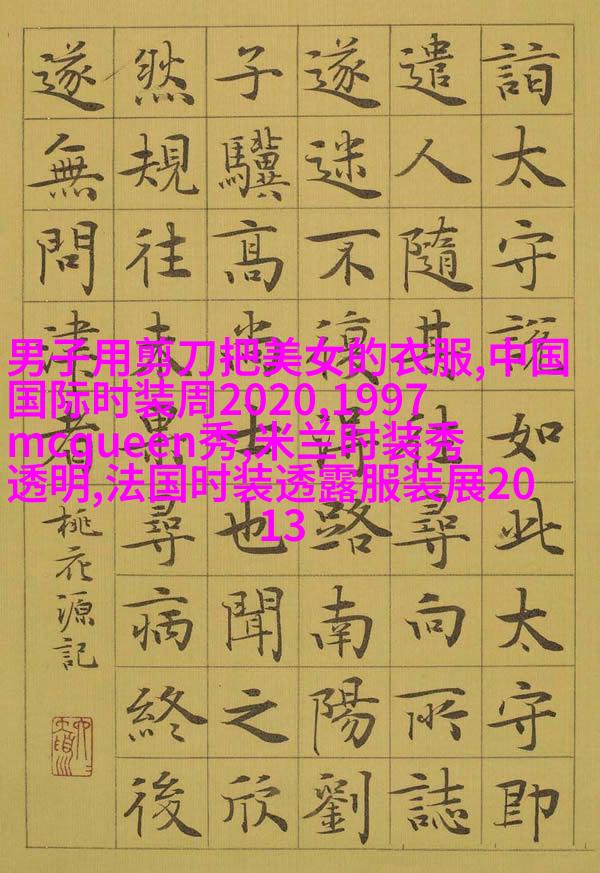 詣太守說如此太守即
遣人隨其往尋向所誌
遂迷不復得路南陽劉
子驥高尚士也聞之欣
然規往未果尋病終後
遂無問津者
桃花源記
男子用剪刀把美女的衣服,中国
国际时装周2020,1997
mcqueen秀,米兰时装秀
透明,法国时装透露服装展20
13